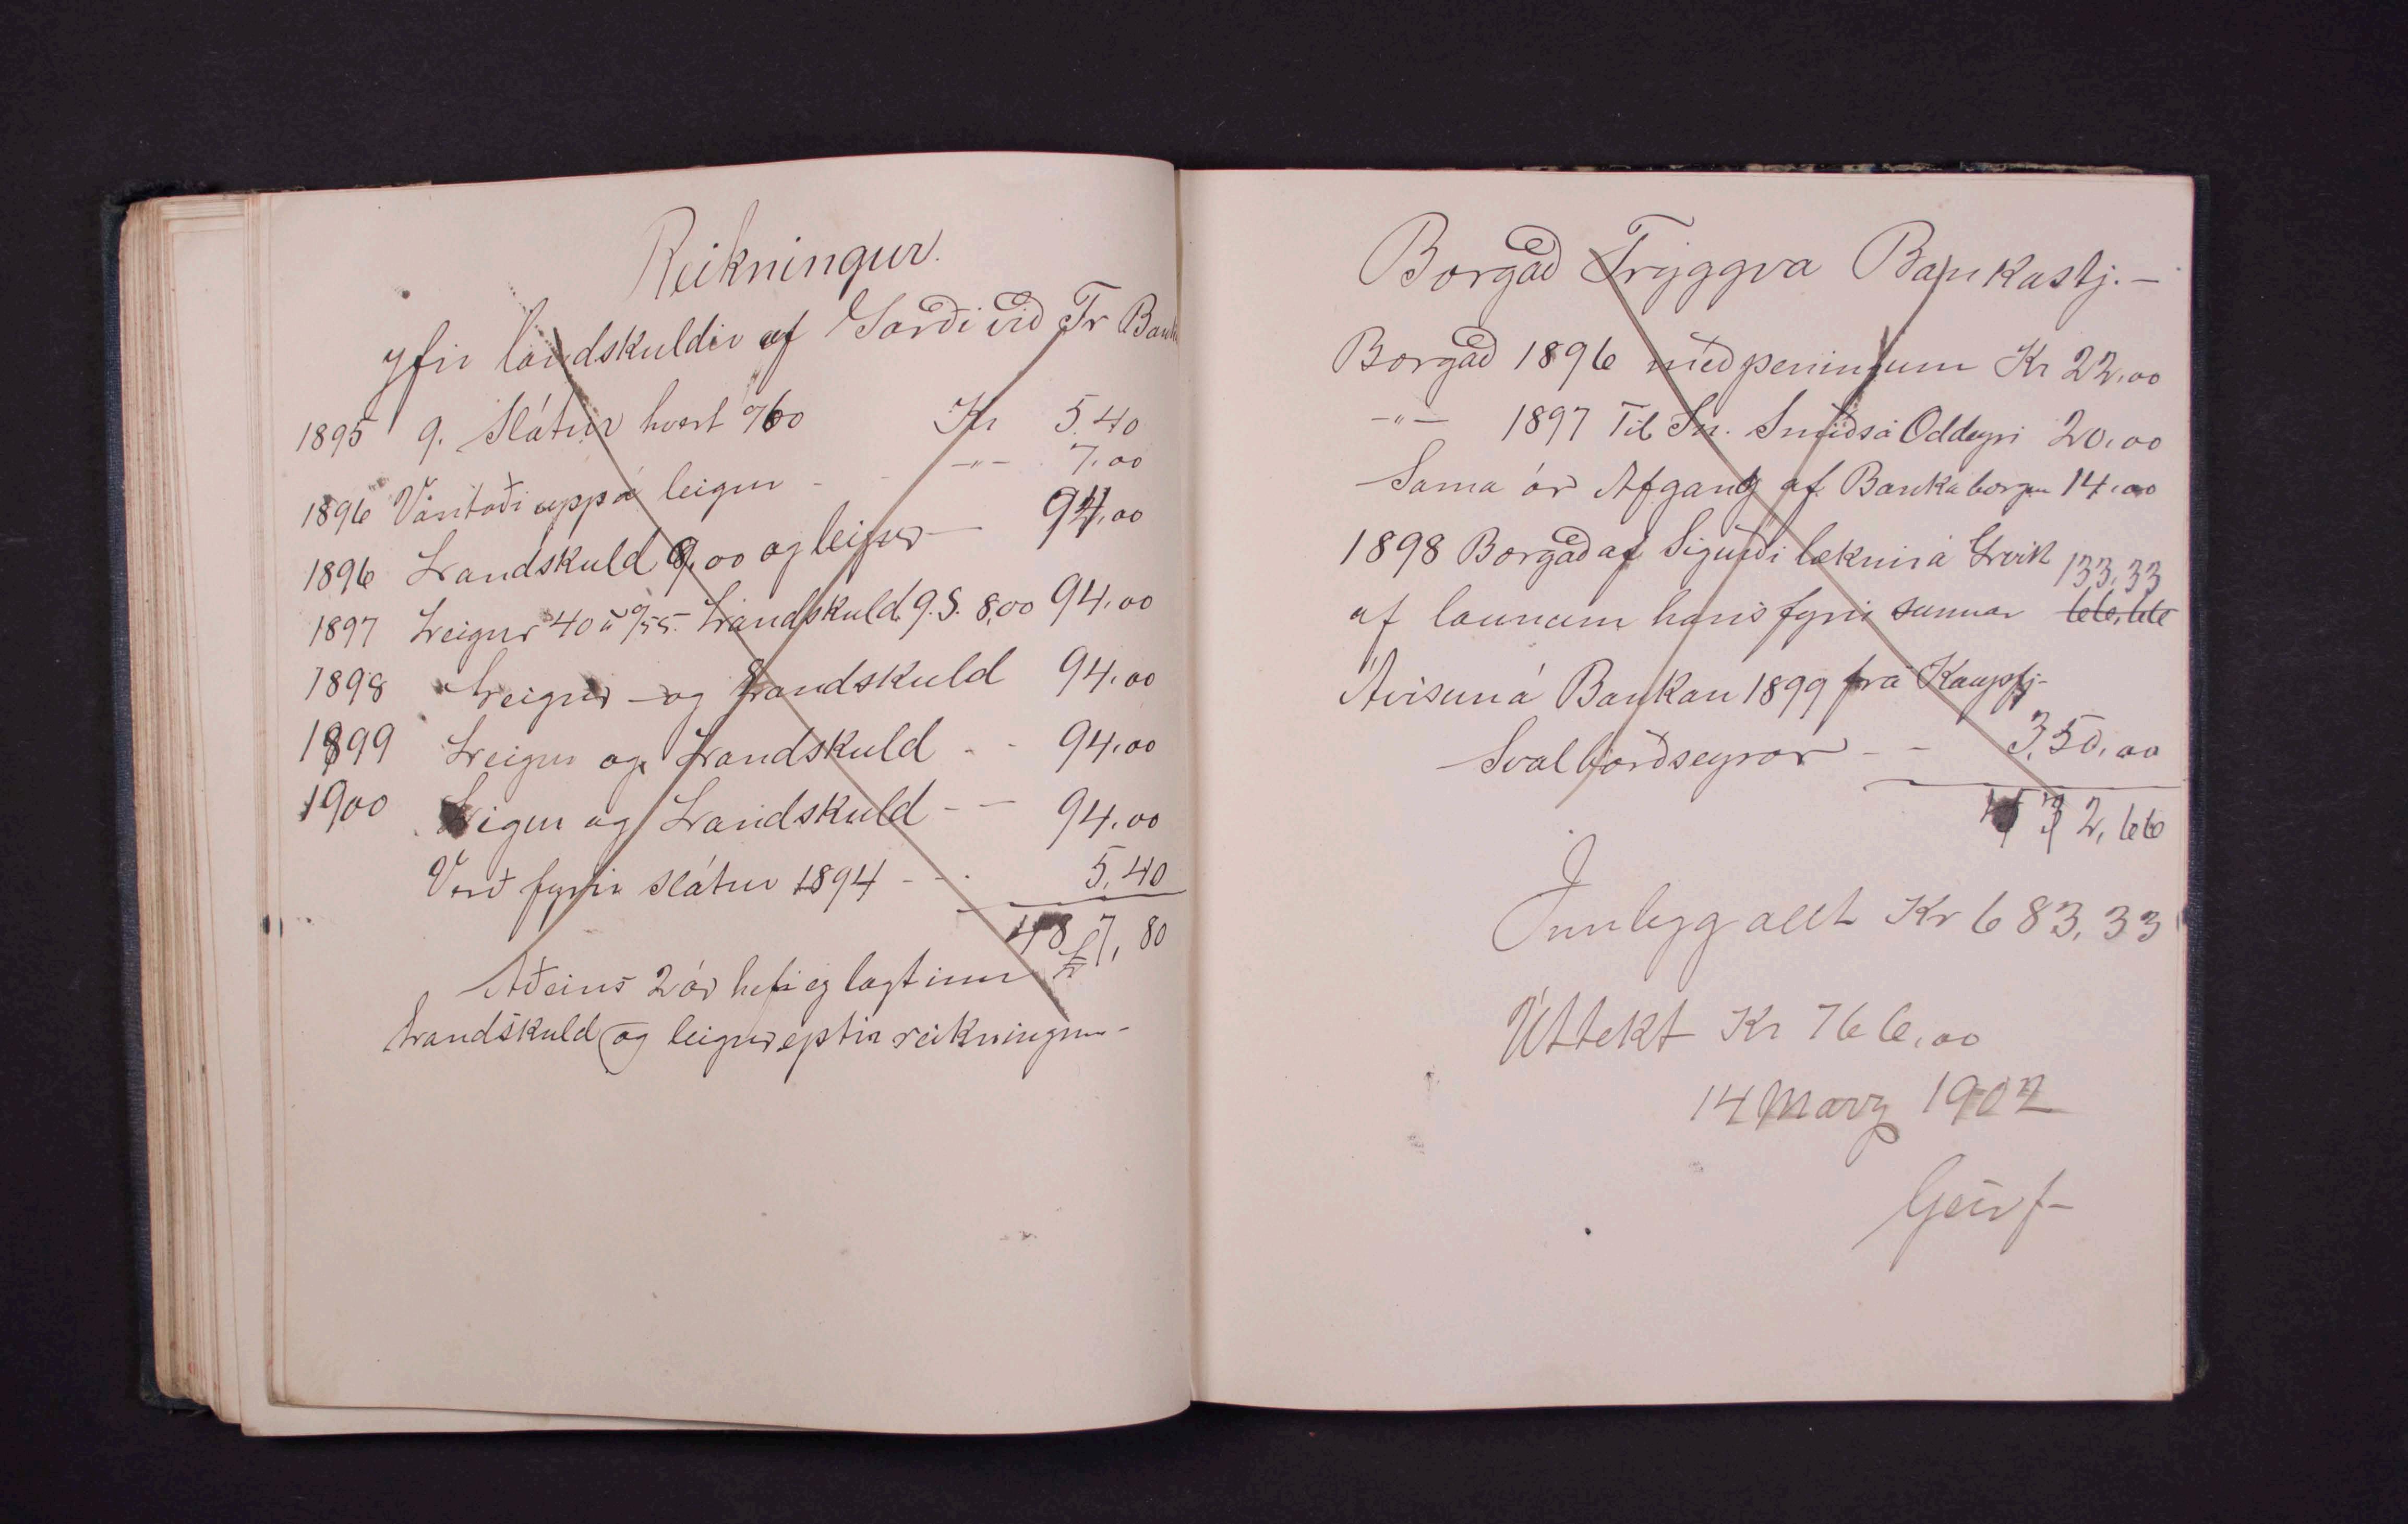 Reikningur.
yfir landskuldir af Garði við Tr Bank
1895 9. Slátur hvert %60 Kr 5.40
1896 Vantaði uppá leigur - -"- 7,00
1896 Landskuld 8,00 og leigur - 94,00
1897 Leigur 40 u %55. Landskuld 9.S. 8,00 94,00
1898 Leigur og Landskuld 94,00
1899 Leigur og Landskuld - - 94,00
1900 Leigur og Landskuld - - 94,00
Verð fyrir slátur 1894 - - 5,40
487,80
Aðeins 2 ár hefi eg lagt inn
Landskuld og leigur eptir reikningum -
Borgað Tryggva Bankastj. -
Borgað 1896 með peningum Kr 22,00
-"- 1897 Til Sn. Smiðs á Oddeyri 20,00
Sama ár Afgang af Banka borgun 14,00
1898 Borgað af Sigurði lækni á Grvik 133,33
af launum hans fyrir sunnan 66,66
Ávisun á Bankan 1899 frá Kaupfj-
Svalbarðseyrar - - 3,50,00
2,66
Innlegg allt Kr 683,33
Úttekt Kr 766,00
14 Marz 1902